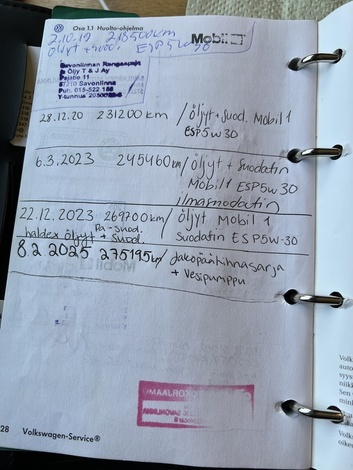 Osa 1.1 Huolto-ohjelma
2.10.19 218500km Mobil 1
öljyt + suod. ESP 5w30
Savonlinnan Rengaspaja
ja Öljy T & J Ay
Pajatie 11
57210 Savonlinna
Puh. 015-522 188
Y-tunnus
28.12.20 231200 km / öljyt + suod. Mobil 1
ESP 5w30
6.3.2023 245460 km / öljyt + suodatin
Mobil 1 ESP 5w30
ilmansuodatin
22.12.2023 269700 km / öljyt Mobil 1
suodatin ESP 5w-30
haldex öljyt + suod.
Pa-suod.
8.2 2025 275195 km / Jakopäänhihnasarja
+ Vesipumppu
28 Volkswagen-Service®